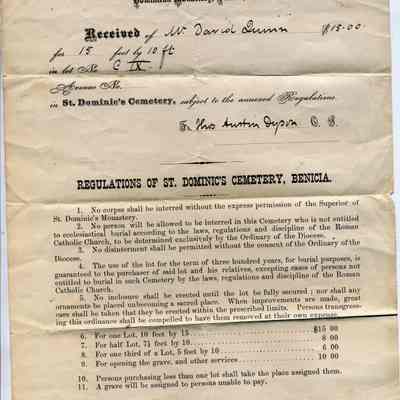 Dominican Monastery,
Received of Mr David Quinn $15.00
for 15 feet by 10 ft
in lot No. C IX.
Avenue No.
in St. Dominic's Cemetery, subject to the annexed Regulations.
Austin Dyson O. S.
REGULATIONS OF ST. DOMINIC'S CEMETERY, BENICIA.
1. No corpse shall be interred without the express permission of the Superior of
St. Dominic's Monastery.
2. No person will be allowed to be interred in this Cemetery who is not entitled
to ecclesiastical burial according to the laws, regulations and discipline of the Roman
Catholic Church, to be determined exclusively by the Ordinary of the Diocese.
3. No disinterment shall be permitted without the consent of the Ordinary of the
Diocese.
4. The use of the lot for the term of three hundred years, for burial purposes, is
guaranteed to the purchaser of said lot and his relatives, excepting cases of persons not
entitled to burial in such Cemetery by the laws, regulations and discipline of the Roman
Catholic Church.
5. No inclosure shall be erected until the lot be fully secured; nor shall any
ornaments be placed unbecoming a sacred place. When improvements are made, great
care shall be taken that they be erected within the prescribed limits. Persons transgress-
ing this ordinance shall be compelled to have them removed at their own expense.
6. For one Lot, 10 feet by 15 $15 00
7. For half Lot, 7½ feet by 10 8 00
8. For one third of a Lot, 5 feet by 10 6 00
9. For opening the grave, and other services 10 00
10. Persons purchasing less than one lot shall take the place assigned them.
11. A grave will be assigned to persons unable to pay.